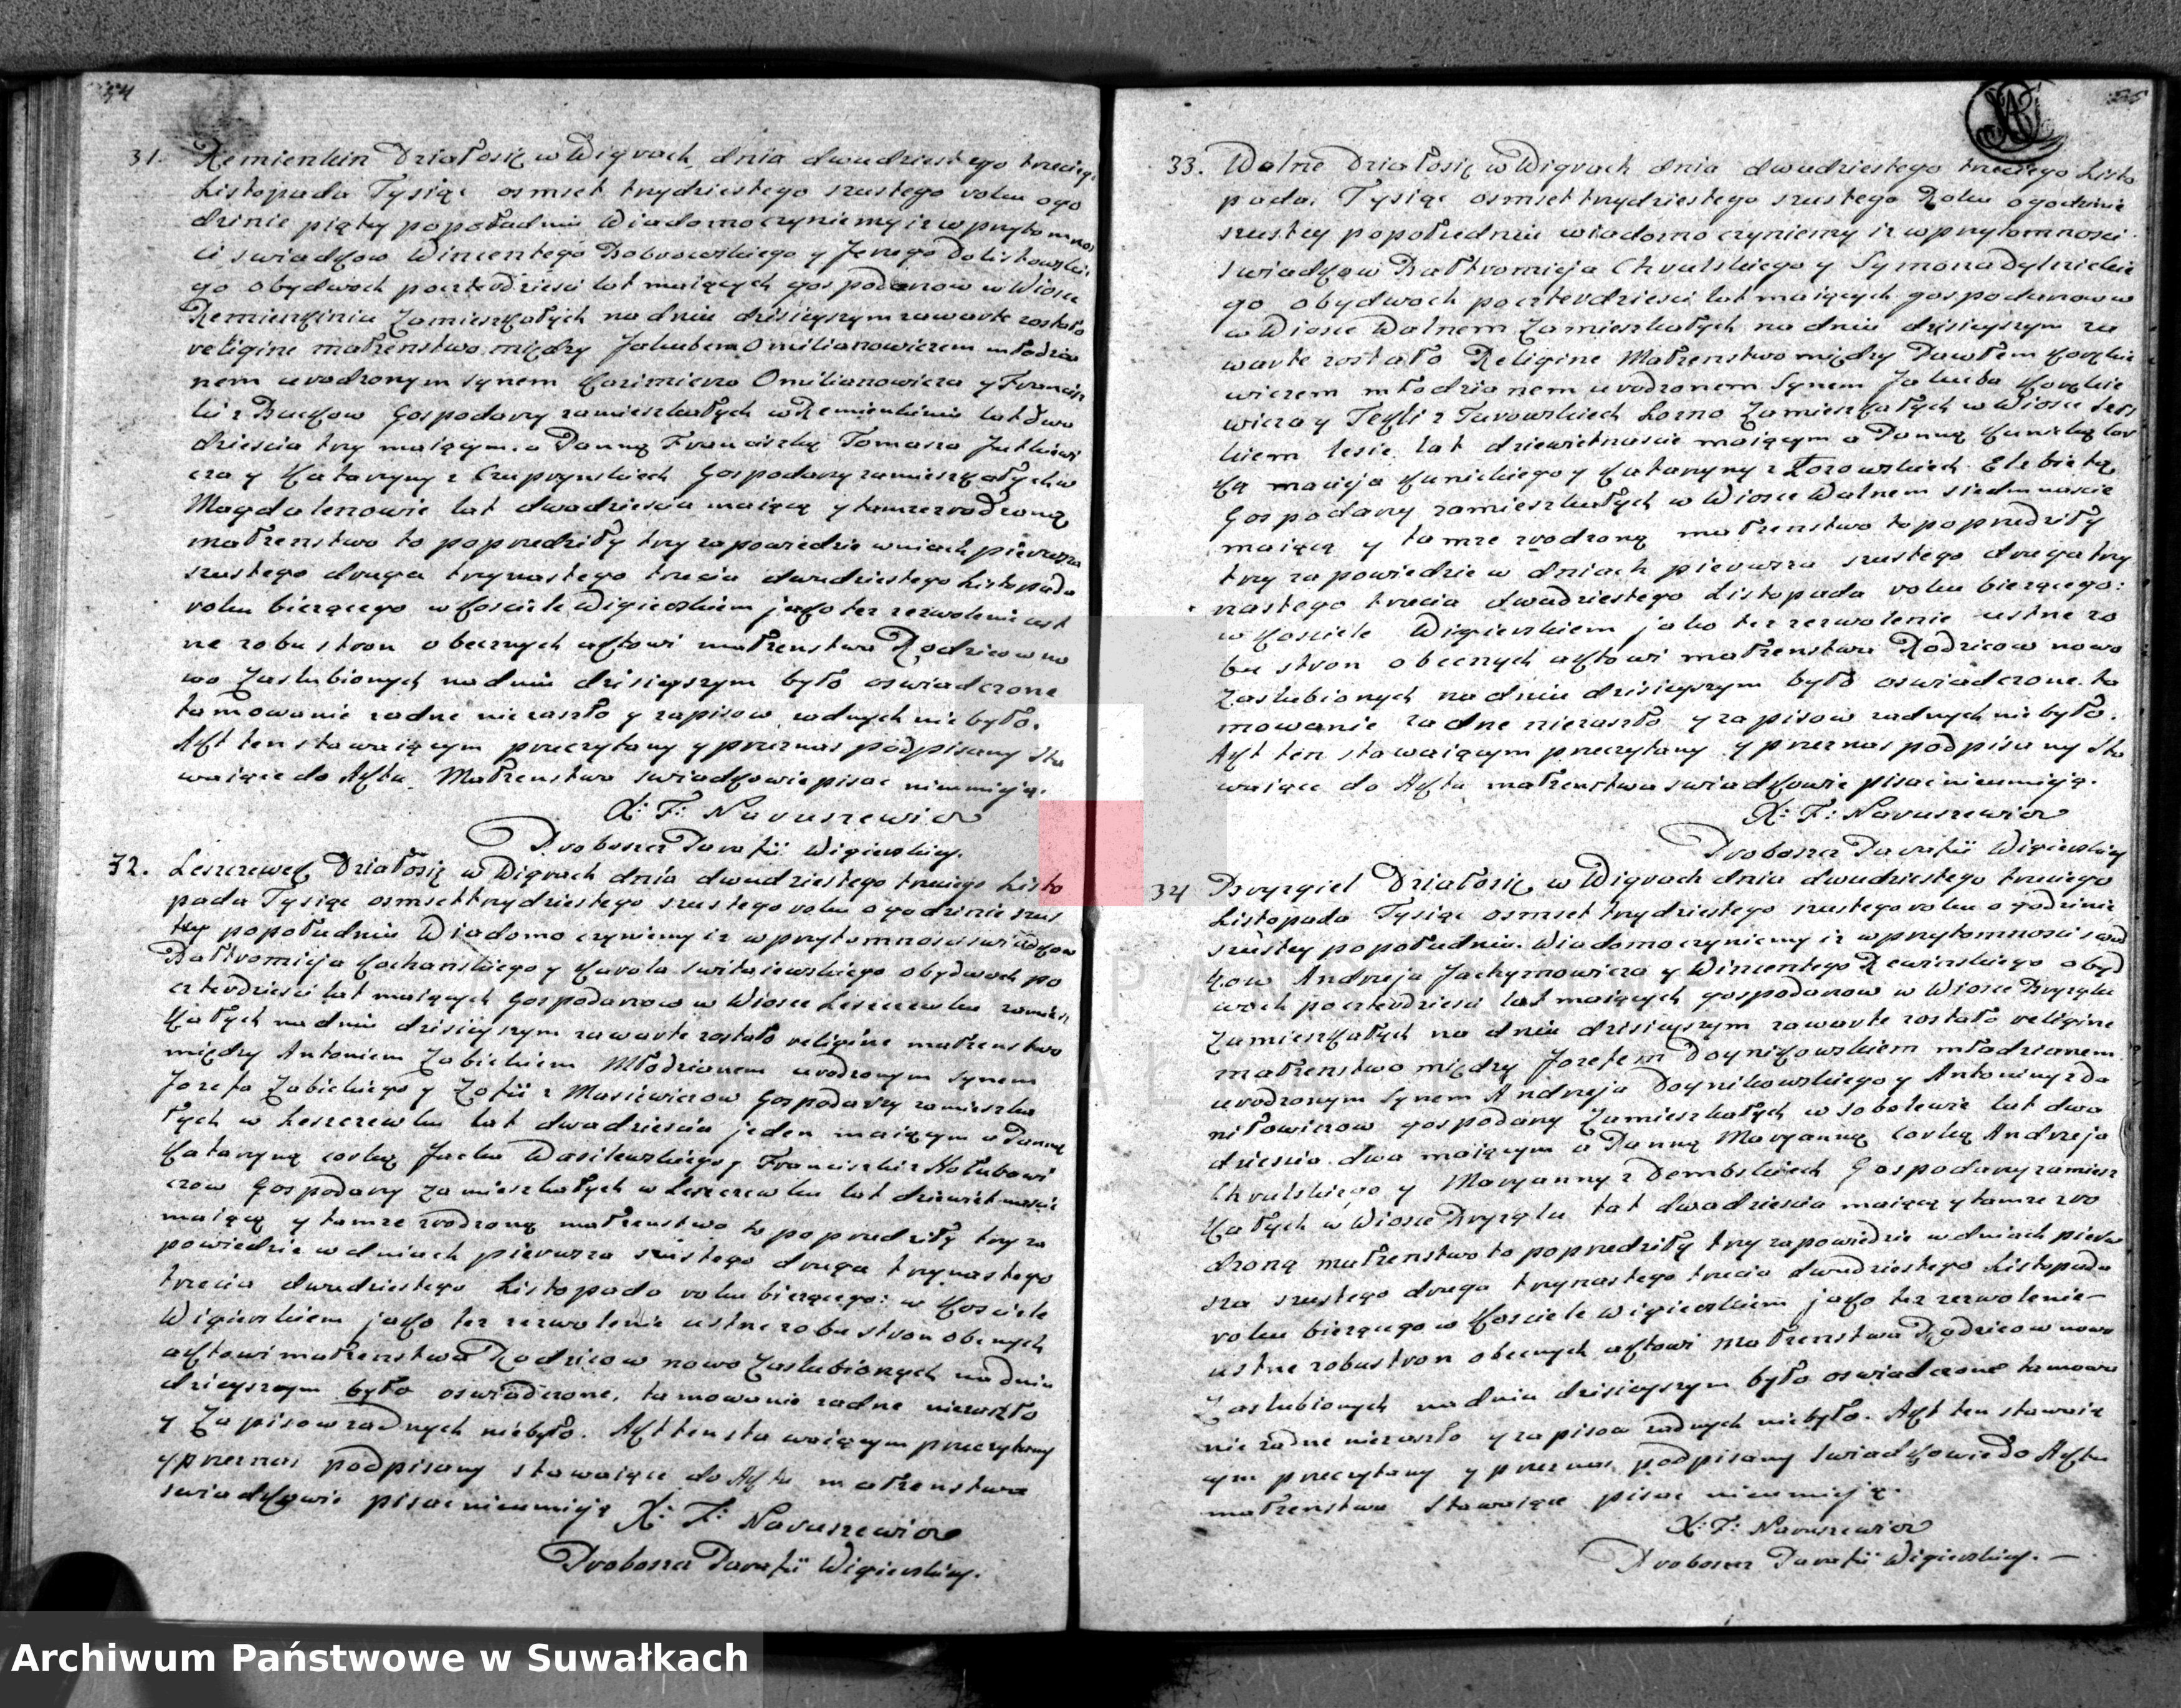 54
31. Remienkin Działosię w Wigrach dnia dwudziestego trzeciego
Listopada Tysiąc osmset trzydziestego szustego roku ogo
dzinie piątey popołudniu Wiadomo czyniemy iz w przytomnos
ci swiadkow Wincentego Bobrowskiego y Jerzego
go obydwoch poczterdziesci lat maiących gospodarzow w Wiosce
Remienkiniu Zamieszkałych na dniu dzisieyszym zawarte zostało
religine małzenstwo między Jakubem Omilianowiczem młodzia
nem urodzonym synem Kazimierza Omilianowicza y Francisz
ki z Buckow Gospodarzy zamieszkałych w Remienkiniu lat dwa
dziescia trzy maiącym. a Panną Franciszką Tomasza Jutkiewi
cza y Katarzyny z Czuprynskiech Gospodarzy zamieszkałych w
Magdalenowie lat dwadziescia maiącą y tamze zrodzoną
małzenstwo to poprzedziły trzy zapowiedzie w niach pierwsza
szustego druga trzynastego trzecia dwudziestego Listopada
roku bierzącego w Kosciele Wigierskiem jako tez zezwolenie ust
ne zobu stron obecznych aktowi małzenstwa Rodzicow no
wo Zaslubionych na dniu dzisieyszym było oswiadczone
tamowanie zadne niezaszło y zapisow zadnych nie było.
Akt ten stawaiącym przeczytany y przeznas podpisany Sta
waiące do Aktu Małzenstwa swiadkowie pisac nieumieją.
X: F: Naruszewicz
Proboszcz Parafii Wigierskiey.
32. Leszczewek Działosię w Wigrach dnia dwudziestego trzeciego Listo
pada Tysiąc osmset trzydziestego szustego roku o godzinie szus
tey popołudniu Wiadomo czyniemy iz w przytomnosci swiadkow
Bałtromieja Kochanskiego y Karola obydwoch po
czterdziesci lat maiących Gospodarzow w Wiosce Leszczewku zamiesz
kałych na dniu dzisieyszym zawarte zostało religine małzenstwo
między Antoniem Zabickiem Młodzianem urodzonym synem
Jozefa Zabickiego y Zofii z Masiewiczow Gospodarzy zamieszka
łych w Leszczewku lat dwadziescia jeden maiącym a Panną
Katarzyną corką Jacka Wasilewskiego y Franciszki z Hołubowi
czow Gospodarzy zamieszkałych w Leszczewku lat dziewietnascie
maiącą y tamze zrodzoną małzenstwo to poprzedziły trzy za
powiedzie w dniach pierwsza szustego druga trzynastego
trzecia dwudziestego Listopada roku bierzącego: w Kosciele
Wigierskiem jako tez zezwolenie ustne zobu stron obecnych
aktowi małzenstwa Rodzicow nowo Zaslubionych na dniu
dzieyszym było oswiadczone, tamowanie zadne niezaszło
y Zapisow zadnych niebyło. Akt ten stawaiącym przeczytany
y przeznas podpisany stawaiące do Aktu małzenstwa
swiadkowie pisac nieumieją
X: F: Naruszewicz
Proboszcz Parafii Wigierskiey.
33. Walne Działosię w Wigrach dnia dwudziestego trzeciego Listo
pada, Tysiąc osmset trzydziestego szustego Roku ogodzinie
szustey popołudniu wiadomo czyniemy iz w przytomnosci
swiadkow Bałtromieja Chrulskiego y Symona
go obydwoch poczterdziesci lat maiących gospodarzow
w Wiosce Walnem Zamieszkałych na dniu dzisieyszym za
warte zostało Religine Małzenstwo między Pawłem
wiczem młodzianem urodzonem Synem Jakuba
wicza y Tekli z Turowskiech Zamieszkałych w Wiosce
kiem lesie lat dziewietnascie maiącym a Panną Kunicką cor
ką Macieja Kunickiego y Katarzyny z Łozowskiech Elzbietą
Gospodarzy zamieszkałych w Wiosce Walnem siedmnascie
maiącą y tamze zrodzoną małzenstwo to poprzedziły
trzy zapowiedzie w dniach pierwsza szustego druga trzy
nastego trzecia dwudziestego Listopada roku bierzącego:
w Kosciele Wigierskiem jako tez zezwolenie ustne zo
bu stron obecnych aktowi małzenstwa Rodzicow nowo
Zaslubionych na dniu dzisieyszym było oswiadczone. ta
mowanie zadne niezaszło y zapisow zadnych nie było.
Akt ten stawaiącym przeczytany y przeznas podpisany Sta
waiące do Aktu małzenstwa swiadkowie pisac nieumieją.
X: F: Naruszewicz
Proboszcz Parafii Wigierskiey
34 Bryzgiel Działosię w Wigrach dnia dwudziestego trzeciego
Listopada Tysiąc osmset trzydziestego szustego roku o godzinie
szustey popołudniu. Wiadomo czyniemy iz w przytomnosci swiad
kow Andrzeja Jachymowicza y Wincentego Rewinskiego obyd
woch poczterdziesci lat maiących gospodarzow w Wiosce Bryzglu
Zamieszkałych na dniu dzisieyszym zawarte zostało religine
małzenstwo między Jozefem Doynikowskiem młodzianem
urodzonym Synem Andrzeja Doynikowskiego y Antoniny z Da
niłowiczow gospodarzy Zamieszkałych w Sobolewie lat dwa
dziescia dwa maiącym a Panną Maryanną corką Andrzeja
Chrulskiego y Maryanny z Dembskiech Gospodarzy zamiesz
kałych w Wiosce Bryzglu lat dwadziescia maiącą y tamze zro
dzoną małzenstwo to poprzedziły trzy zapowiedzie w dniach pierw
sza szustego druga trzynastego trzecia dwudziestego Listopada
roku bierzącego w Kosciele Wigierskiem jako tez zezwolenie
ustne zobustron obecnych aktowi Małzenstwa Rodzicow nowo
Zaslubionych na dniu dzisieyszym było oswiadczone tamowa
nie zadne niezaszło y zapisow zadnych niebyło. Akt ten stawaią
cym przeczytany y przeznas podpisany swiadkowie do Aktu
małzenstwa Stawaiące pisac nieumieją.
X: F: Naruszewicz
Proboszcz Parafii Wigierskiey. —
Archiwum Państwowe w Suwałkach